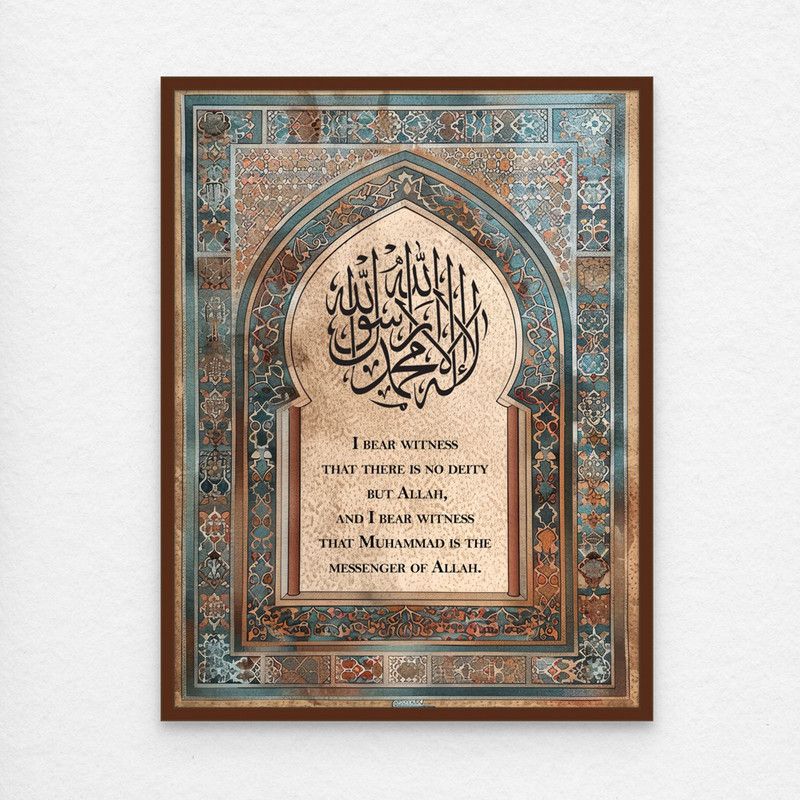 لا إله إلا الله محمد رسول الله
I BEAR WITNESS
THAT THERE IS NO DEITY
BUT ALLAH,
AND I BEAR WITNESS
THAT MUHAMMAD IS THE
MESSENGER OF ALLAH.